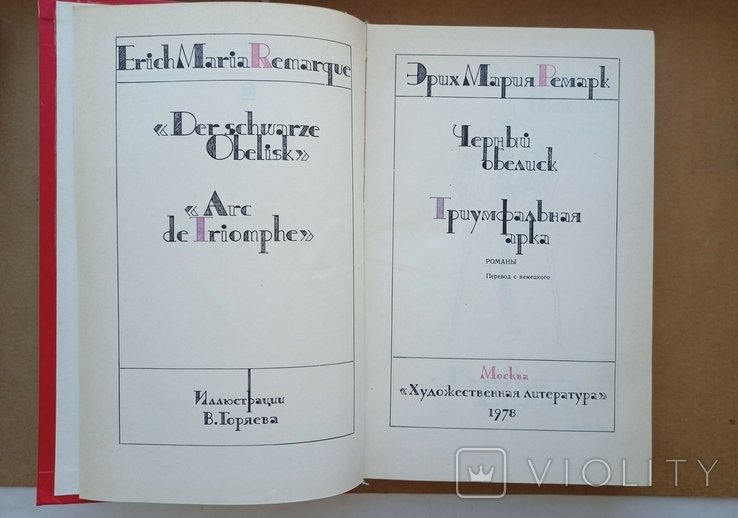 Erich Maria Remarque
«Der schwarze
Obelisk»
«Arc
de Triomphe»
Иллюстрации
В. Горяева
Эрих Мария Ремарк
Черный
обелиск
Триумфальная
арка
РОМАНЫ
Перевод с немецкого
Москва
«Художественная литература»
1978
VIOLITY